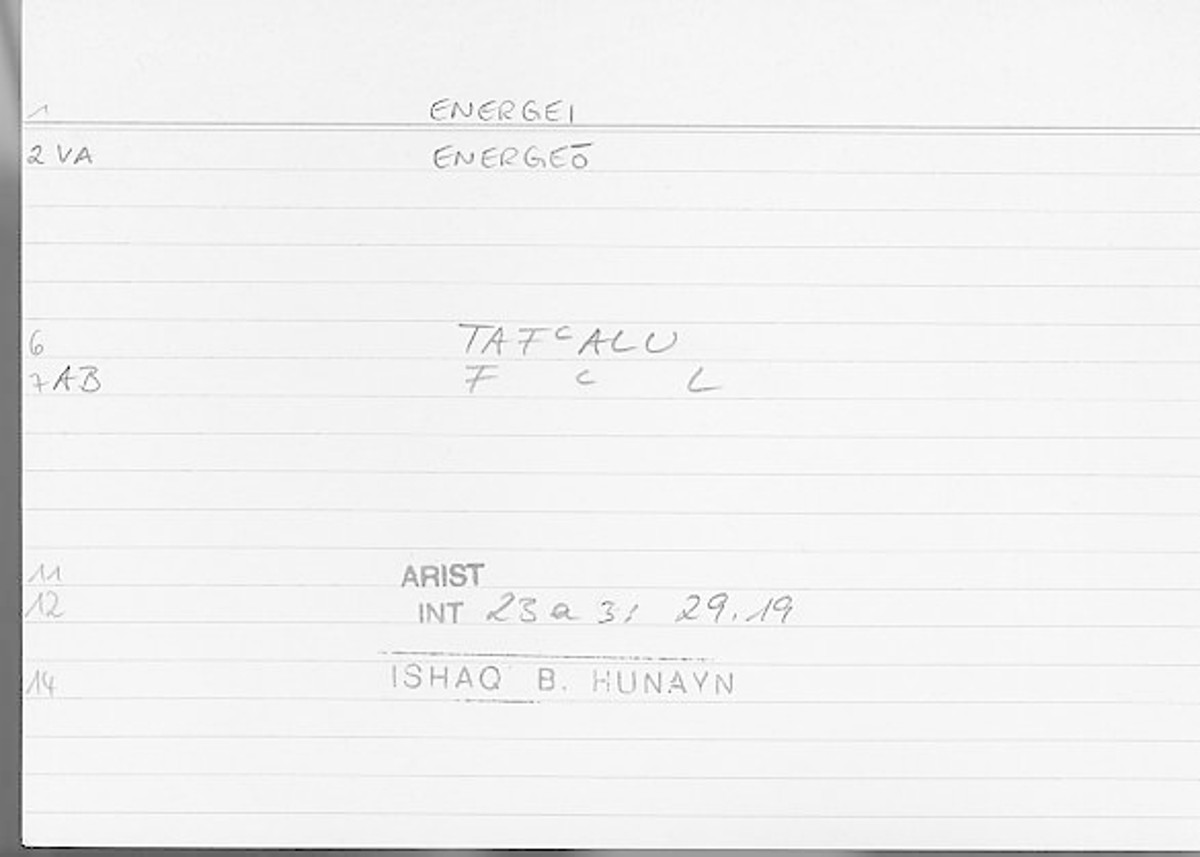 1 ENERGEI
2 VA ENERGEŌ
6 TAFᶜALU
7 AB F ᶜ L
11 ARIST
12 INT 23a3; 29.19
14 ISHAQ B. HUNAYN